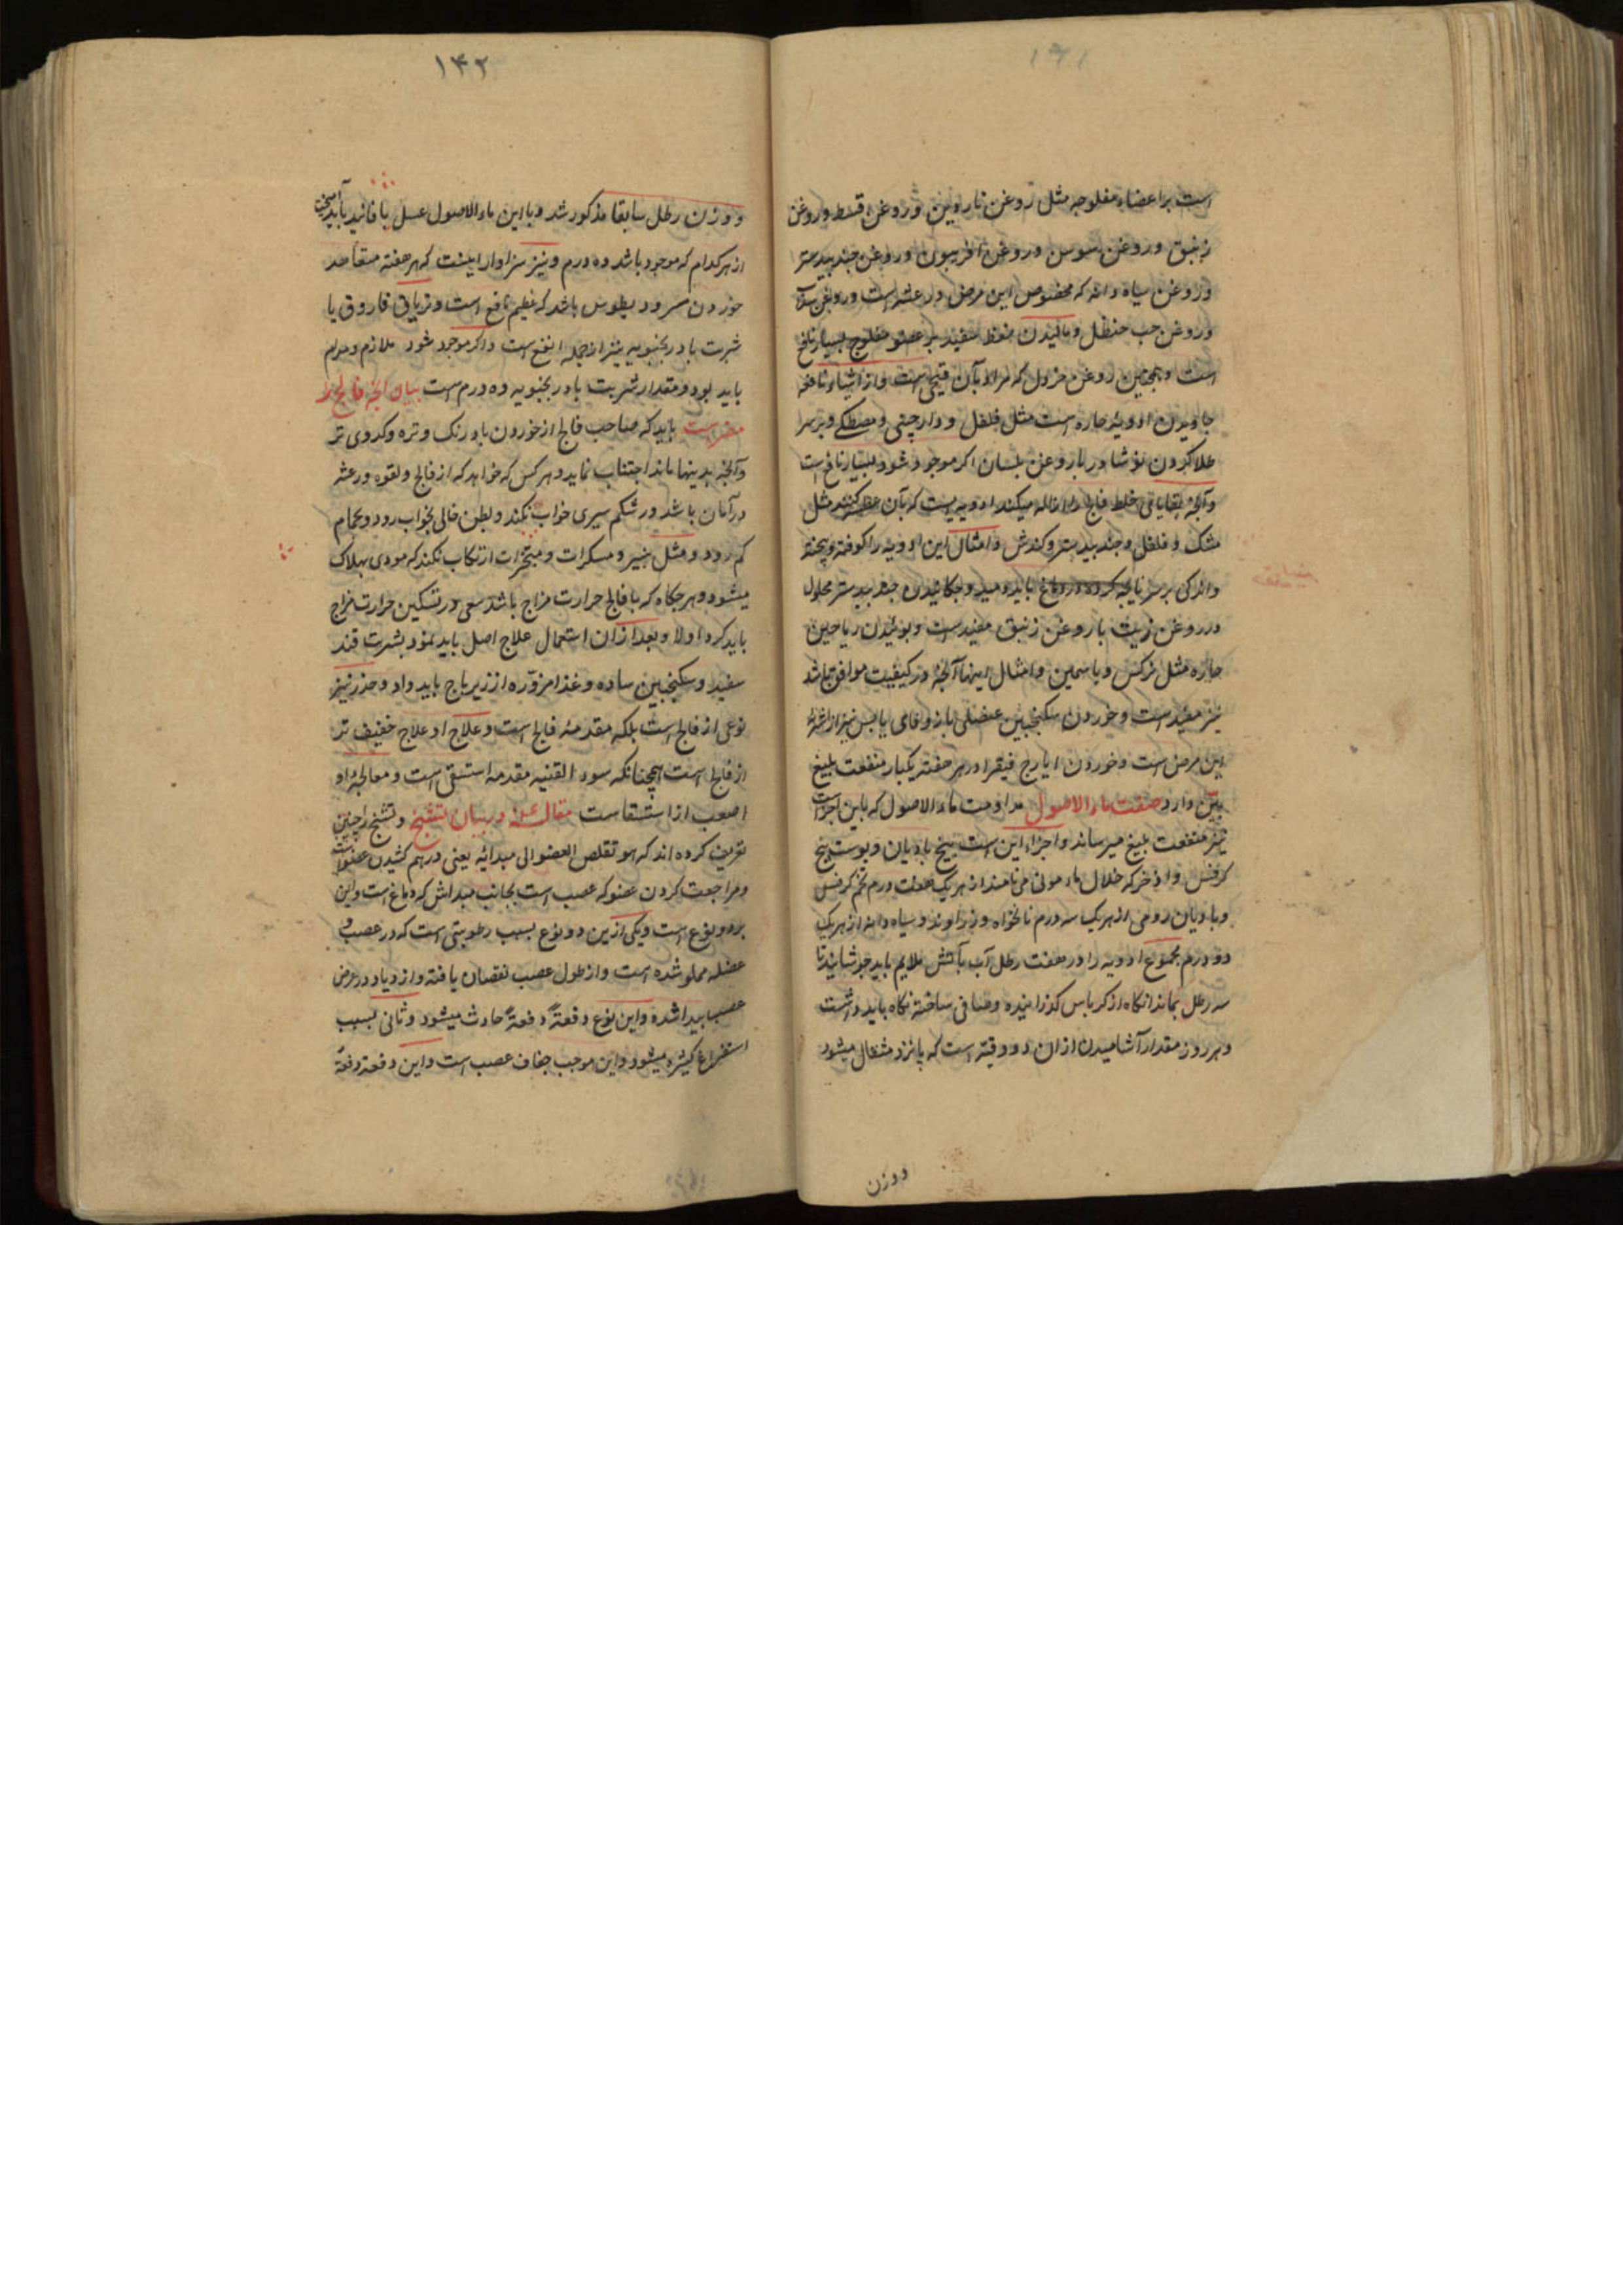 ۱۴۱
است بر اعضاء مفلوجه مثل روغن ناردین و روغن قسط و روغن
زنبق و روغن سوسن و روغن افربیون و روغن جندبیدستر
و روغن سیاه دانه که مخصوص این مرض و رعشه است و روغن
و روغن حب حنظل و مالیدن نفط سفید بر عضو مفلوج بسیار نافع
است و همچنین روغن خردل که مراد بآن قیچی است و از اشیاء نافعه
جاویدن ادویهٔ حاره است مثل فلفل و دارچینی و مصطکی و بر سر
طلا کردن نوشادر با روغن بلسان اکر موجود شود بسیار نافع است
و آنچه بقایای خلط فالج را ازاله میکند ادویه‌ایست که بآن عطسه کنند مثل
مشک و فلفل و جندبیدستر و کندش و امثال این ادویه را کوفته و بیخته
و اندکی بر سر نایچه کرده در دماغ باید دمید و چکانیدن جندبیدستر محلول
در روغن زیت با روغن زنبق مفید است و بوئیدن ریاحین
حاره مثل نرکس و یاسمین و امثال اینها آنچه در کیفیت موافق باشد
نیز مفید است و خوردن سکنجبین عنصلی با زوفای یابس نیز از
این مرض است و خوردن ایارج فیقرا در هر هفته یکبار منفعت بلیغ
بیّن دارد صفت ماء الاصول مداومت ماء الاصول که باین اجزا است
نیز منفعت بلیغ میرساند و اجزاء این است بیخ بادیان و پوست بیخ
کرفس و اذخر که خلال ماء مونی می‌نامند از هر یک هفت درم تخم کرفس
و بادیان رومی از هر یک سه درم نانخواه و زراوند و سیاه دانه از هر یک
دو درم مجموع ادویه را در هفت رطل آب بآتش ملایم باید جوشانید تا
سه رطل بماند آنکاه از کرباس کذرانیده و صافی ساخته نکاه باید داشت
و هر روز مقدار آشامیدن از ان دو وقیه است که پانزده مثقال میشود
و وزن
۱۴۲
و وزن رطل سابقا مذکور شد و با این ماء الاصول عسل یا فانید باید آمیخت
از هر کدام که موجود باشد ده درم و نیز سزاوار اینست که هر هفته متعاهد
خوردن مسرودیطوس باشد که عظیم نافع است و تریاق فاروق یا
شربت بادرنجبویه نیز از جمله انفع است و اکر موجود شود ملازم و مداوم
باید بود و مقدار شربت بادرنجبویه ده درم است بیان آنچه فالج را
مضر است باید که صاحب فالج از خوردن بادرنک و تره و کدوی تر
و آنچه بدینها ماند اجتناب نماید و هر کس که خواهد که از فالج و لقوه و رعشه
در آمان باشد در شکم سیری خواب نکند و بطن خالی بخواب رود و بحمام
کم رود و مثل پنیر و مسکرات و مبخرات ارتکاب نکند که مودی بهلاک
میشود و هرجکاه که با فالج حرارت مزاج باشد سعی در تسکین حرارت مزاج
باید کرد اولا و بعد از ان استعمال علاج اصل باید نمود بشربت قند
سفید و سکنجبین ساده و غذا مزوّره از زیرباج باید داد و خدر نیز
نوعی از فالج است بلکه مقدمهٔ فالج است و علاج او علاج خفیف تر
از فالج است همچنانکه سوء القنیه مقدمه استسقی است و معالجهٔ او
اصوب از استسقاست مقاله در بیان تشنج و تشنج را چنین
تعریف کرده اند که هو تقلص العضو الی مبدائه یعنی درهم کشیدن عضو است
و مراجعت کردن عضو که عصب است بجانب مبداش که دماغ است و این
بر دو نوع است و یکی ازین دو نوع بسبب رطوبتی است که در عصب و
عضله مملو شده است و از طول عصب نقصان یافته و ازدیاد در عرض
عصب پیدا شده و این نوع دفعةً دفعةً حادث میشود و ثانی بسبب
استفراغ کثیره میشود و این موجب جفاف عصب است و این دفعةً دفعةً